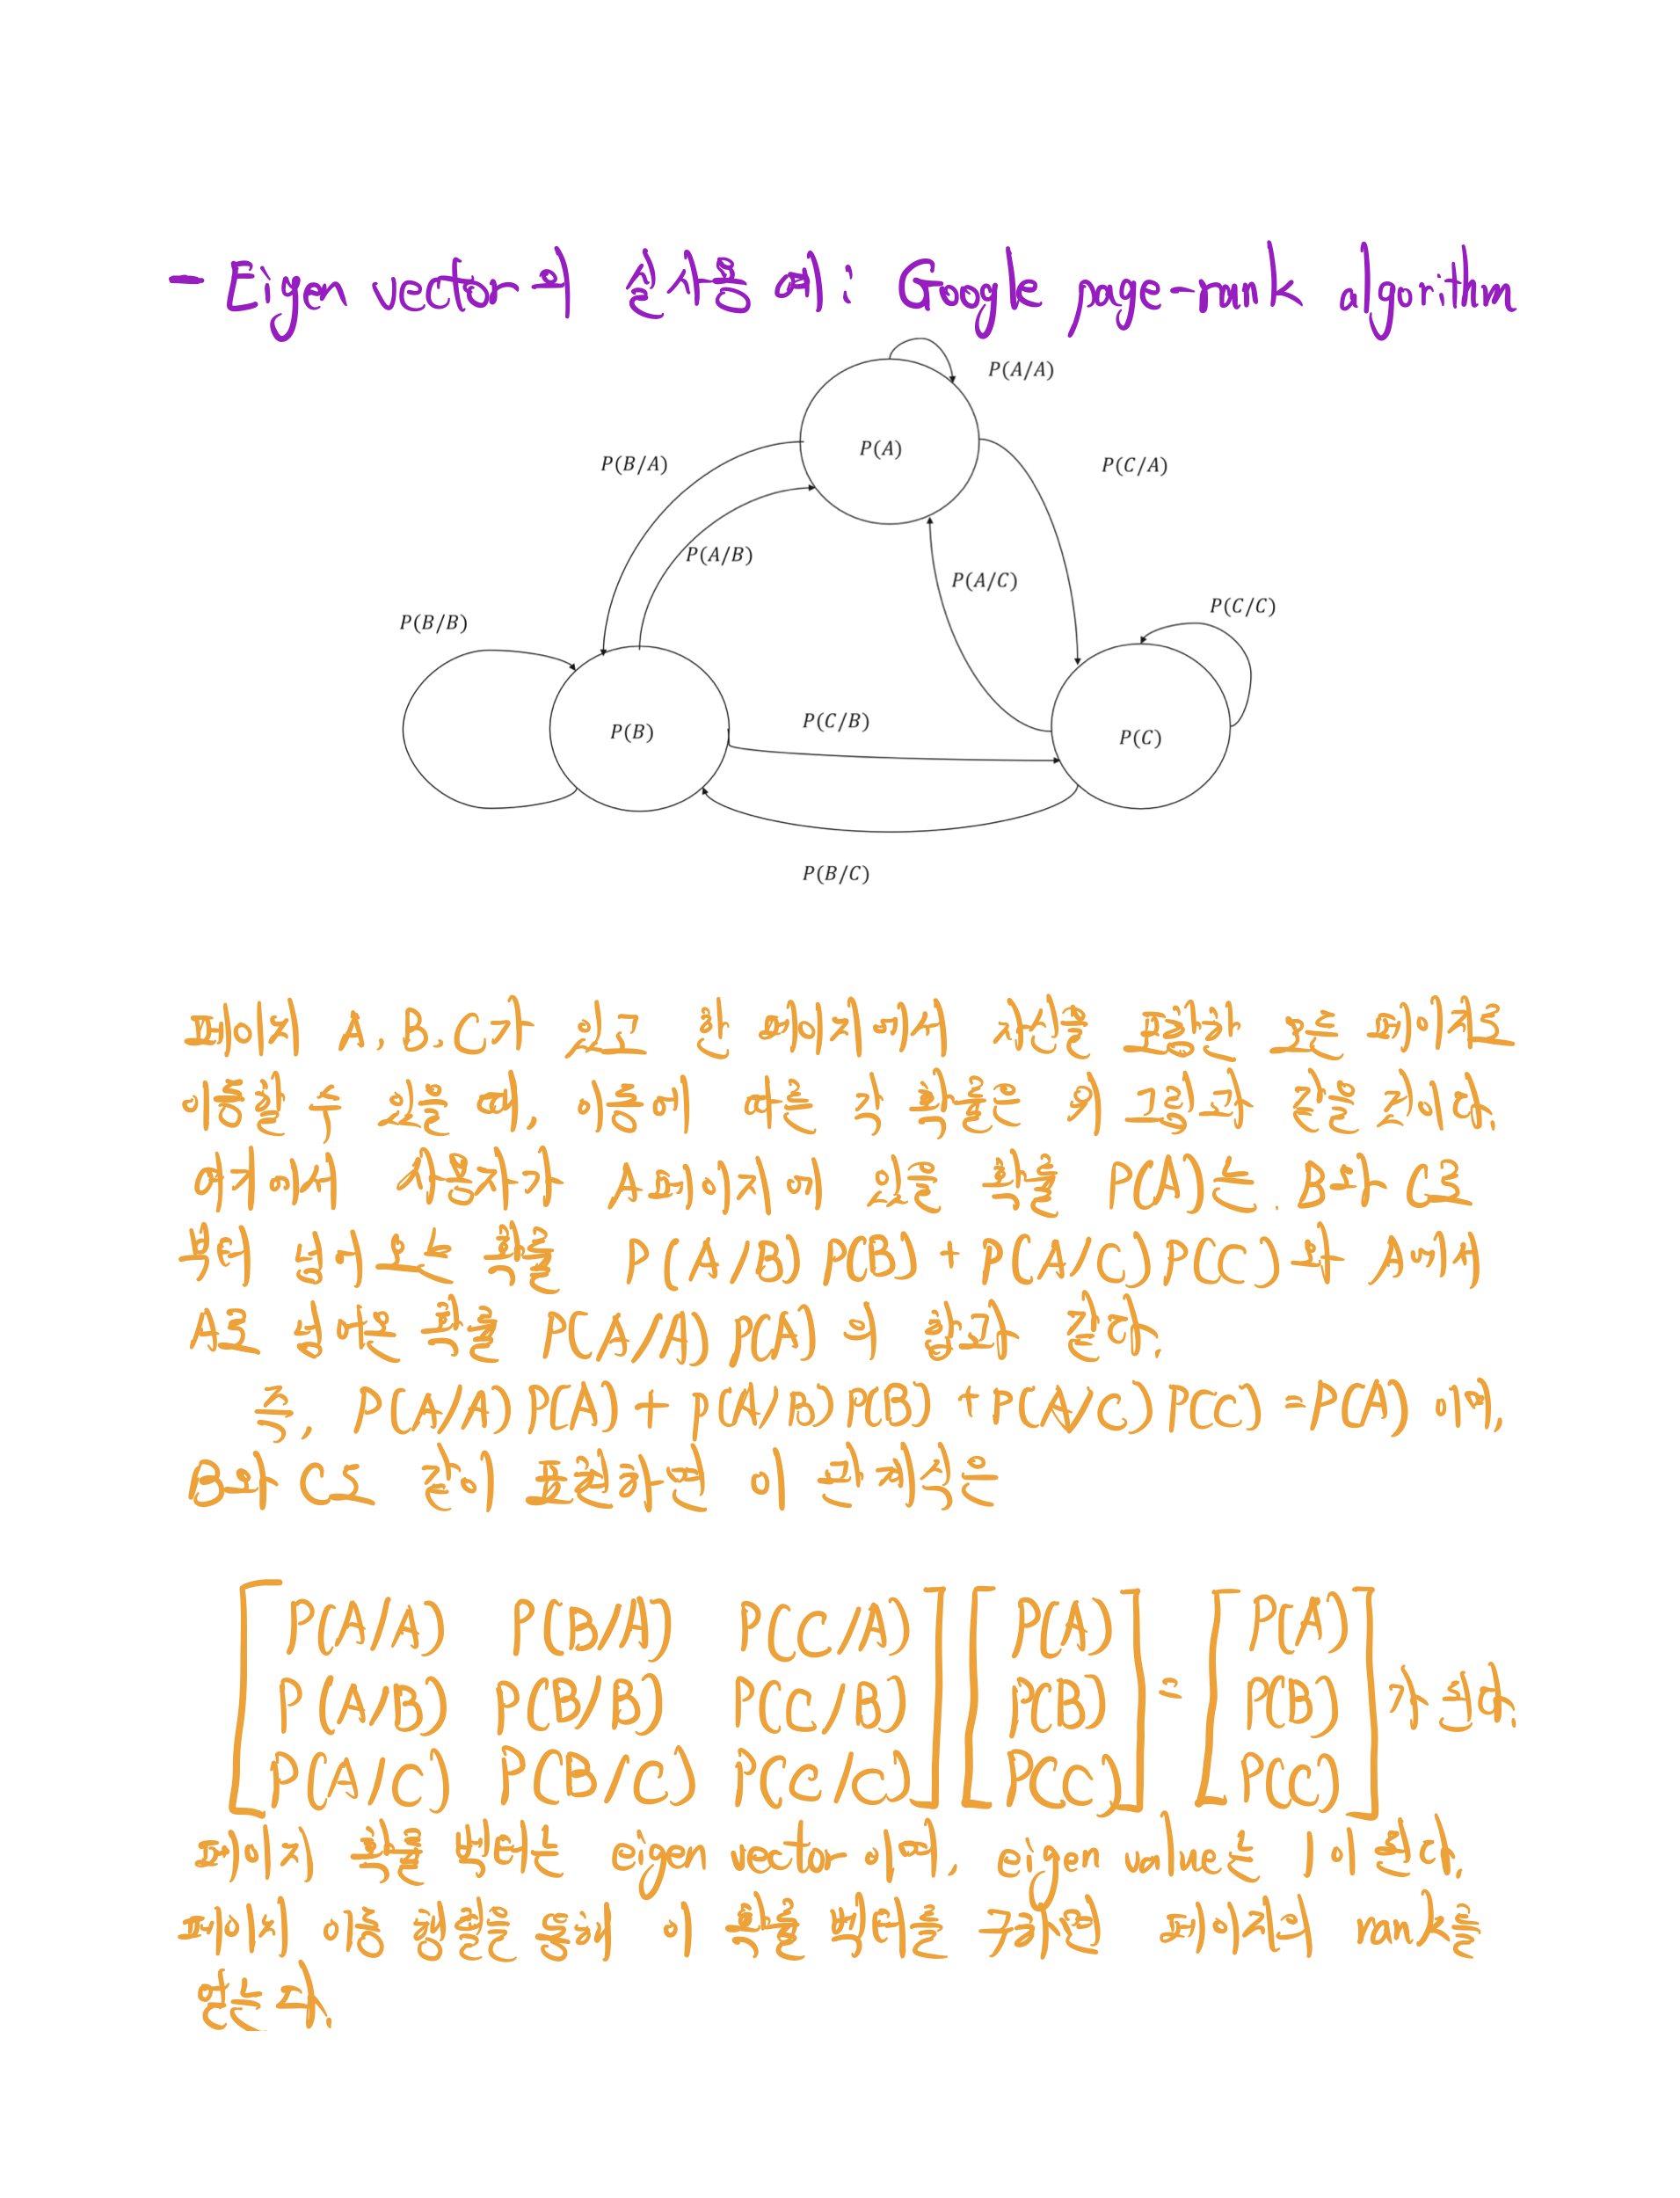 - Eigen vector의 실사용 예: Google page-rank algorithm
P(A/A)
P(A)
P(B/A)
P(C/A)
P(A/B)
P(A/C)
P(B/B)
P(C/C)
P(C/B)
P(B)
P(C)
P(B/C)
페이지 A, B, C가 있고 한 페이지에서 자신을 포함한 모든 페이지로
이동할 수 있을 때, 이동에 따른 각 확률은 위 그림과 같을 것이다.
여기에서 사용자가 A페이지에 있을 확률 P(A)는, B와 C로
부터 넘어오는 확률 P(A/B)P(B)+P(A/C)P(C)와 A에서
A로 넘어온 확률 P(A/A)P(A)의 합과 같다.
즉, P(A/A)P(A)+P(A/B)P(B)+P(A/C)P(C)=P(A)이며,
B와 C도 같이 표현하면 이 관계식은
[P(A/A) P(B/A) P(C/A)] [P(A)] = [P(A)]
P(A/B) P(B/B) P(C/B) P(B) P(B) 가 된다.
P(A/C) P(B/C) P(C/C) P(C) P(C)
페이지 확률 벡터는 eigen vector이며, eigen value는 1이 된다.
페이지 이동 행렬을 통해 이 확률 벡터를 구하면 페이지의 rank를
얻는다.